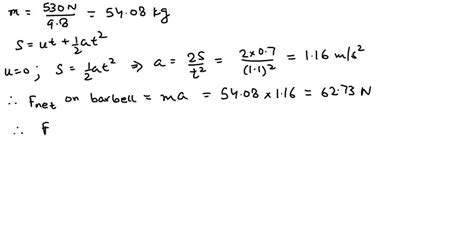 m = 530N / 9.8 = 54.08 kg
S = ut + ½at²
u=0 ; S = ½at² ⇒ a = 2S / t² = 2×0.7 / (1.1)² = 1.16 m/s²
∴ Fnet on barbell = ma = 54.08 × 1.16 = 62.73 N
∴ F